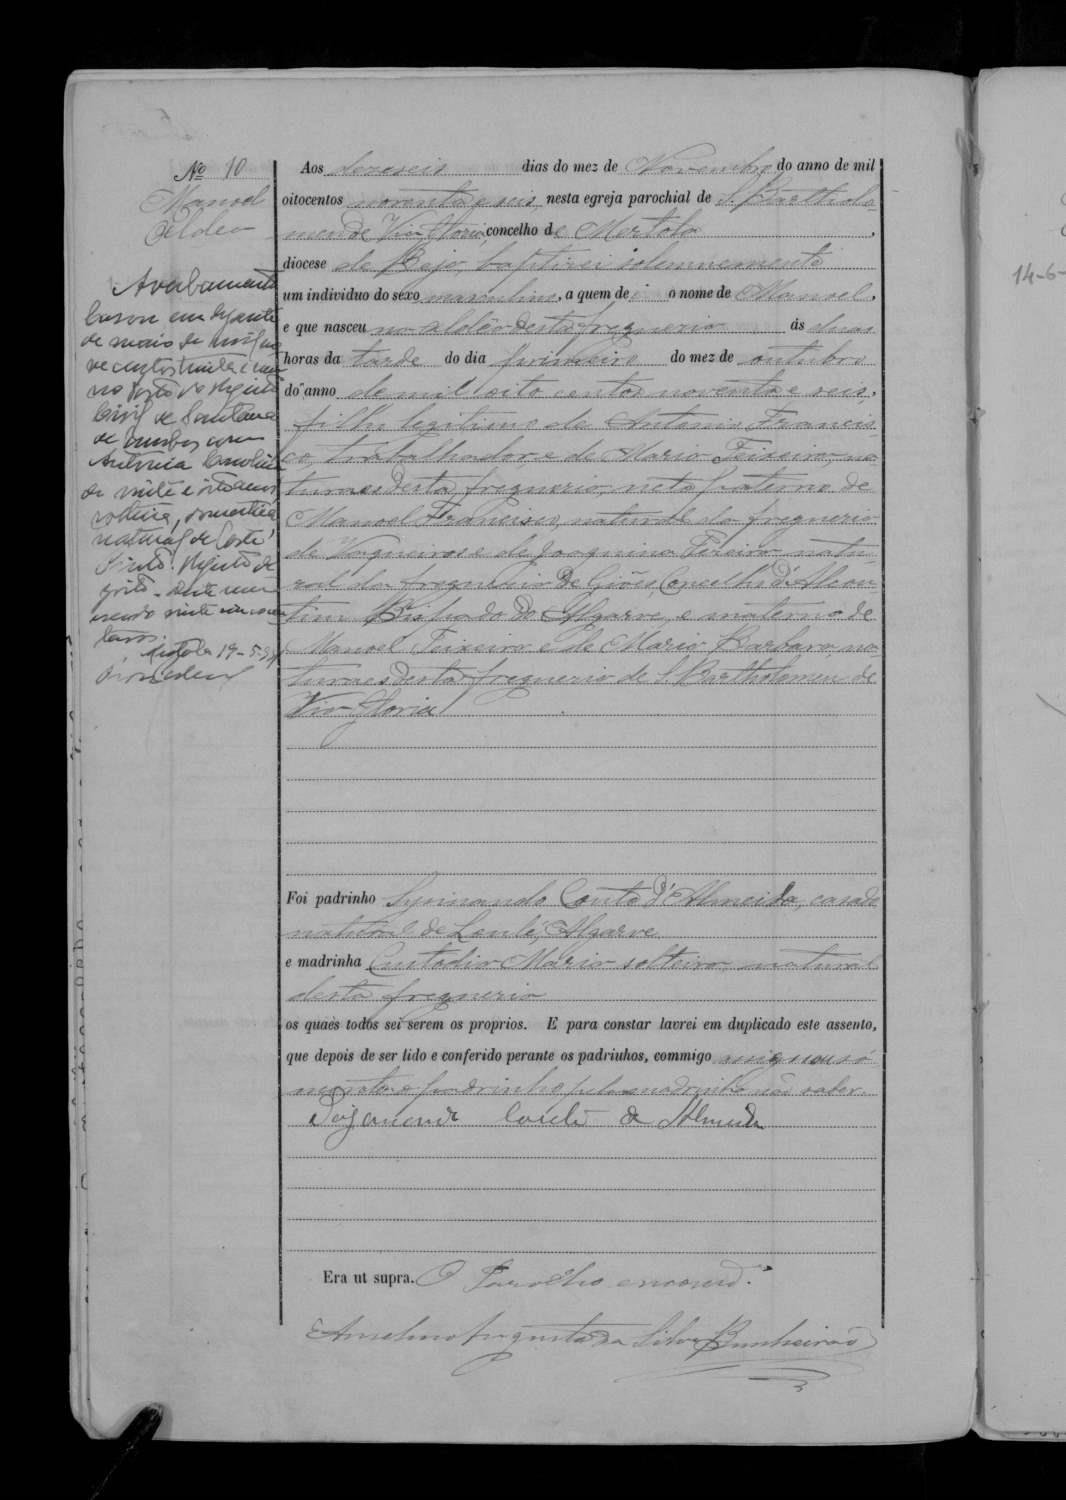 Nº 10
Manoel
Aldeo
Averbamento
Casou em dezanove
de maio de mil no
ve centos trinta e um
no Posto do Registo
Civil de Santana
de Cambas com
Antónia
de vinte e oito anos
solteira, domestica
natural de Corte
Pinto. Registo de
19-5-31
14-6-
Aos dezeseis dias do mez de Novembro do anno de mil
oitocentos noventa e seis, nesta egreja parochial de S. Bartholo-
meu de Via Gloria, concelho de Mertola,
diocese de Beja, baptizei solemnemente
um individuo do sexo masculino, a quem dei o nome de Manoel,
e que nasceu no Aldeo desta freguezia ás duas
horas da tarde do dia primeiro do mez de outubro
do anno de mil oito centos noventa e seis,
filho legitimo de Antonio Francis-
co, trabalhador, e de Maria Teixeira, na-
turaes desta freguezia, neto paterno de
Manoel Francisco, natural da freguezia
de Vaqueiros e de Joaquina Pereira natu-
ral da freguezia de Giões, Concelho d'Alcou-
tim Bispado do Algarve, e materno de
Manoel Teixeira e de Maria Barbara, na-
turaes desta freguezia de S. Bartholomeu de
Via Gloria
Foi padrinho Sezinando Conte d'Almeida, casado
natural de Loulé, Algarve
e madrinha Custodia Maria solteira, natural
desta freguezia
os quaes todos sei serem os proprios. E para constar lavrei em duplicado este assento,
que depois de ser lido e conferido perante os padrinhos, commigo assignou só
mente o padrinho pela madrinha não saber.
de Almeida
Era ut supra. O Parocho encomd.º
Anselmo Augusto da Silva